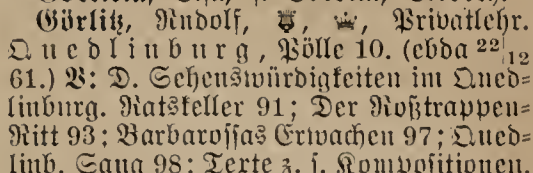 Görlitz, Rudolf, Privatlehr.
Quedlinburg, Pölle 10. (ebda 22|12
61.) V: D. Sehenswürdigkeiten im Qued=
linburg. Ratskeller 91; Der Roßtrappen=
Ritt 93; Barbarossas Erwachen 97; Qued=
linb. Sang 98; Texte z. s. Kompositionen.